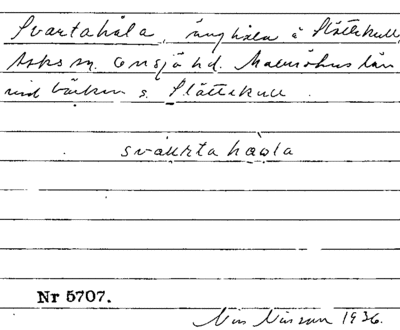 Svartahåla, änghåla å Slättekull,
Asks sn. Onsjö hd. Malmöhus län
vid bäcken s. Slättekull.
svaurtahaola
Nr 5707.
Nils Nilsson 1936.